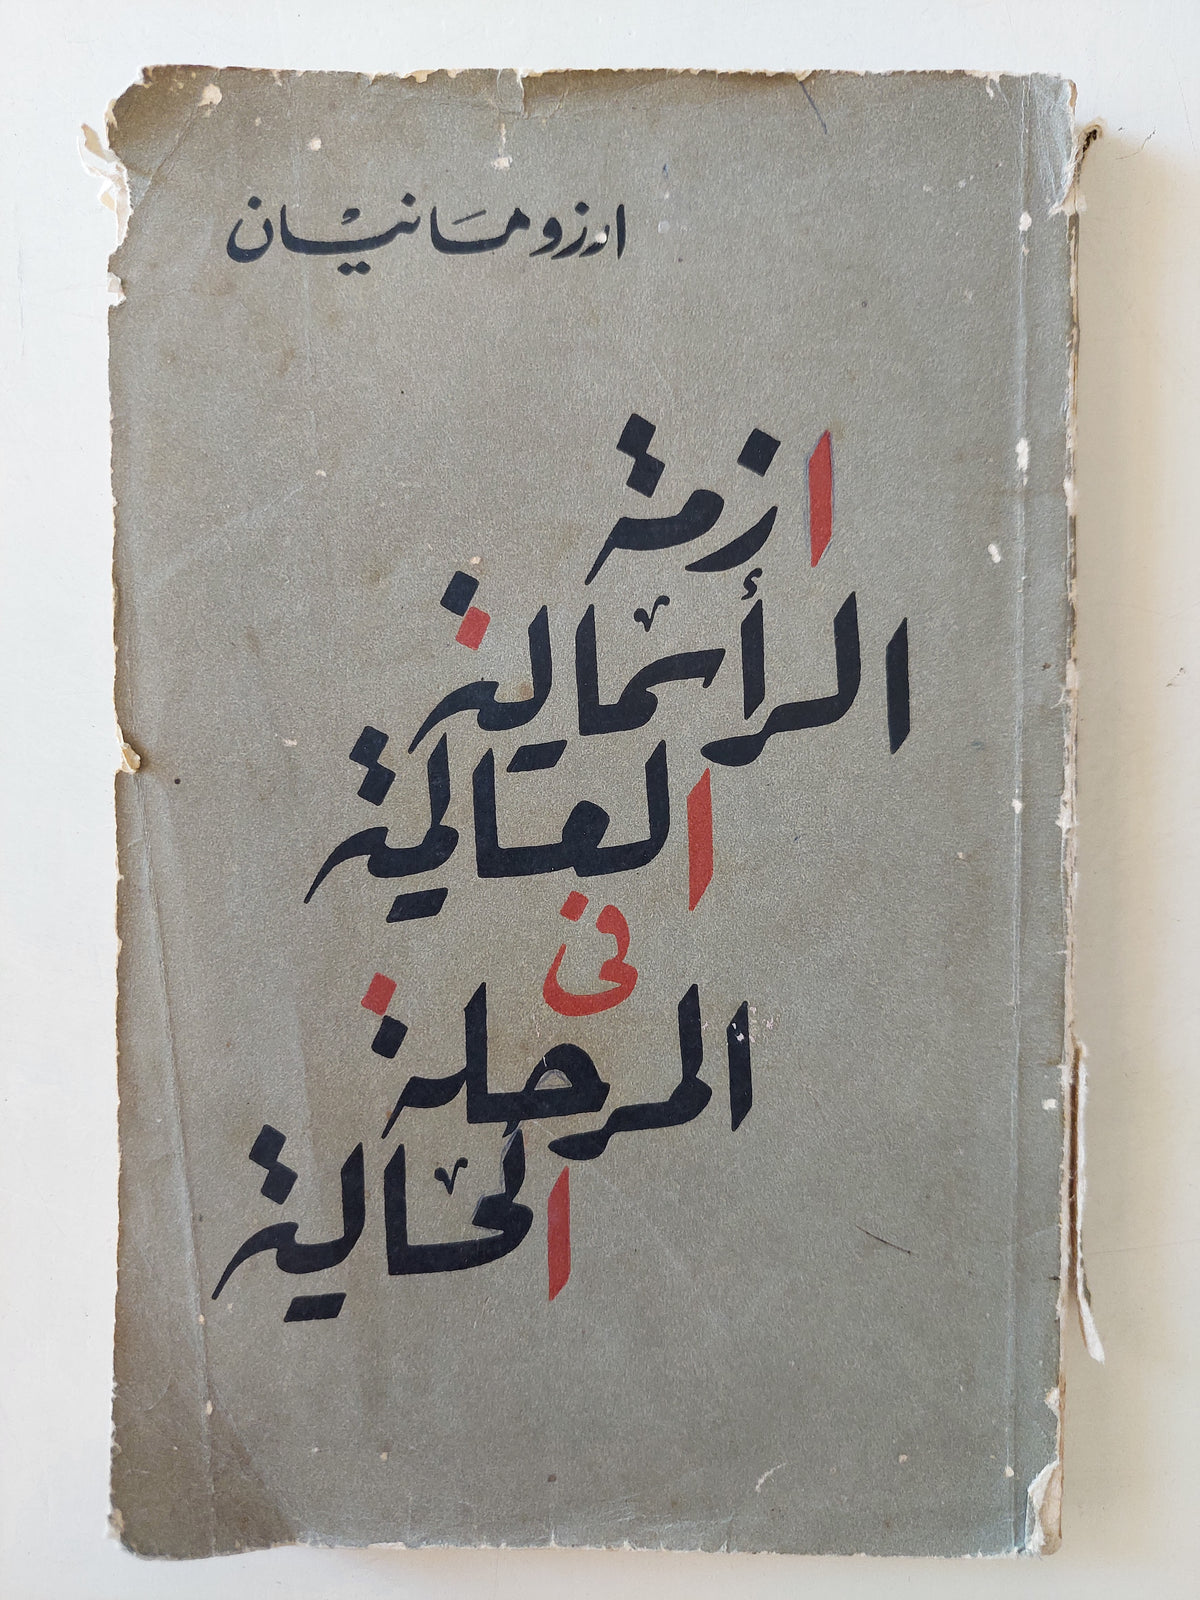 ارزومانيان
ازمة
الرأسمالية
العالمية
فى
المرحلة
الحالية